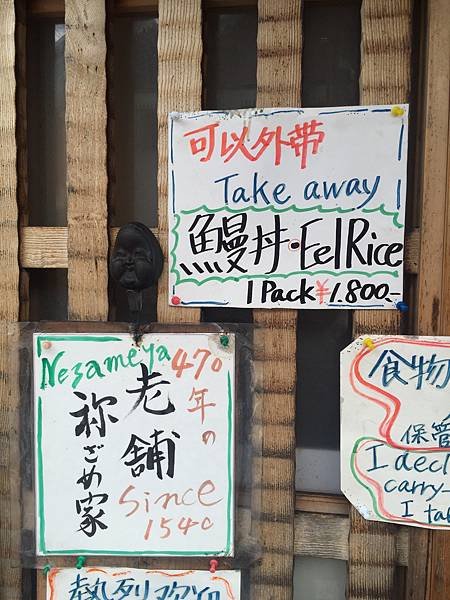 可以外帯
Take away
鰻丼・Eel Rice
1 Pack ¥1.800.-
Nezameya
470年の
老舗
祢ざめ家
since
1540
食物
保管
I decl
carry-
I tak